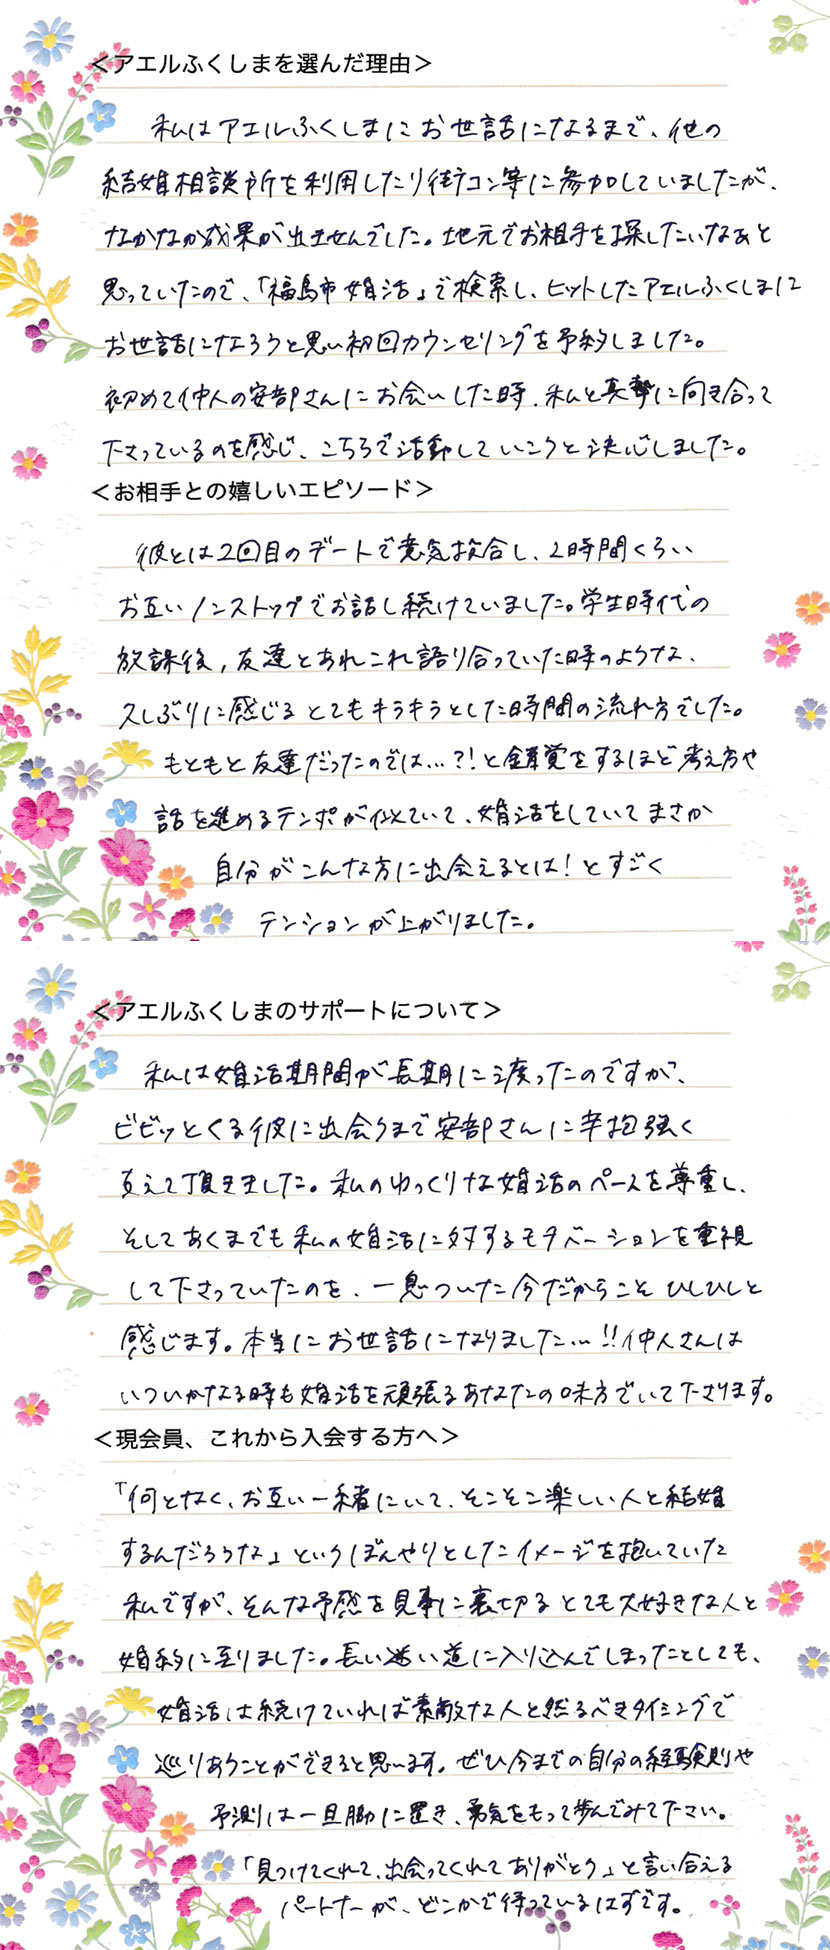 ＜アエルふくしまを選んだ理由＞
私はアエルふくしまにお世話になるまで、他の
結婚相談所を利用したり街コン等に参加していましたが、
なかなか成果が出ませんでした。地元でお相手を探したいなぁと
思っていたので、「福島市 婚活」で検索し、ヒットしたアエルふくしまに
お世話になろうと思い初回カウンセリングを予約しました。
初めて仲人の安部さんにお会いした時、私と真摯に向き合って
下さっているのを感じ、こちらで活動していこうと決心しました。
＜お相手との嬉しいエピソード＞
彼とは2回目のデートで意気投合し、2時間くらい
お互いノンストップでお話し続けていました。学生時代の
放課後、友達とあれこれ語り合っていた時のような、
久しぶりに感じるとてもキラキラとした時間の流れ方でした。
もともと友達だったのでは…?!と錯覚をするほど考え方や
話を進めるテンポが似ていて、婚活をしていてまさか
自分がこんな方に出会えるとは!とすごく
テンションが上がりました。
＜アエルふくしまのサポートについて＞
私は婚活期間が長期に渡ったのですが、
ビビッとくる彼に出会うまで安部さんに辛抱強く
支えて頂きました。私のゆっくりな婚活のペースを尊重し、
そしてあくまでも私の婚活に対するモチベーションを重視
して下さっていたのを、一息ついた今だからこそひしひしと
感じます。本当にお世話になりました…!!仲人さんは
いついかなる時も婚活を頑張るあなたの味方でいて下さります。
＜現会員、これから入会する方へ＞
「何となく、お互い一緒にいて、そこそこ楽しい人と結婚
するんだろうな」というぼんやりとしたイメージを抱いていた
私ですが、そんな予感を見事に裏切るとても大好きな人と
婚約に至りました。長い迷い道に入り込んでしまったとしても、
婚活は続けていれば素敵な人と然るべきタイミングで
巡りあうことができると思います。ぜひ今までの自分の経験則や
予測は一旦脇に置き、勇気をもって歩んでみて下さい。
「見つけてくれて、出会ってくれてありがとう」と言い合える
パートナーが、どこかで待っているはずです。